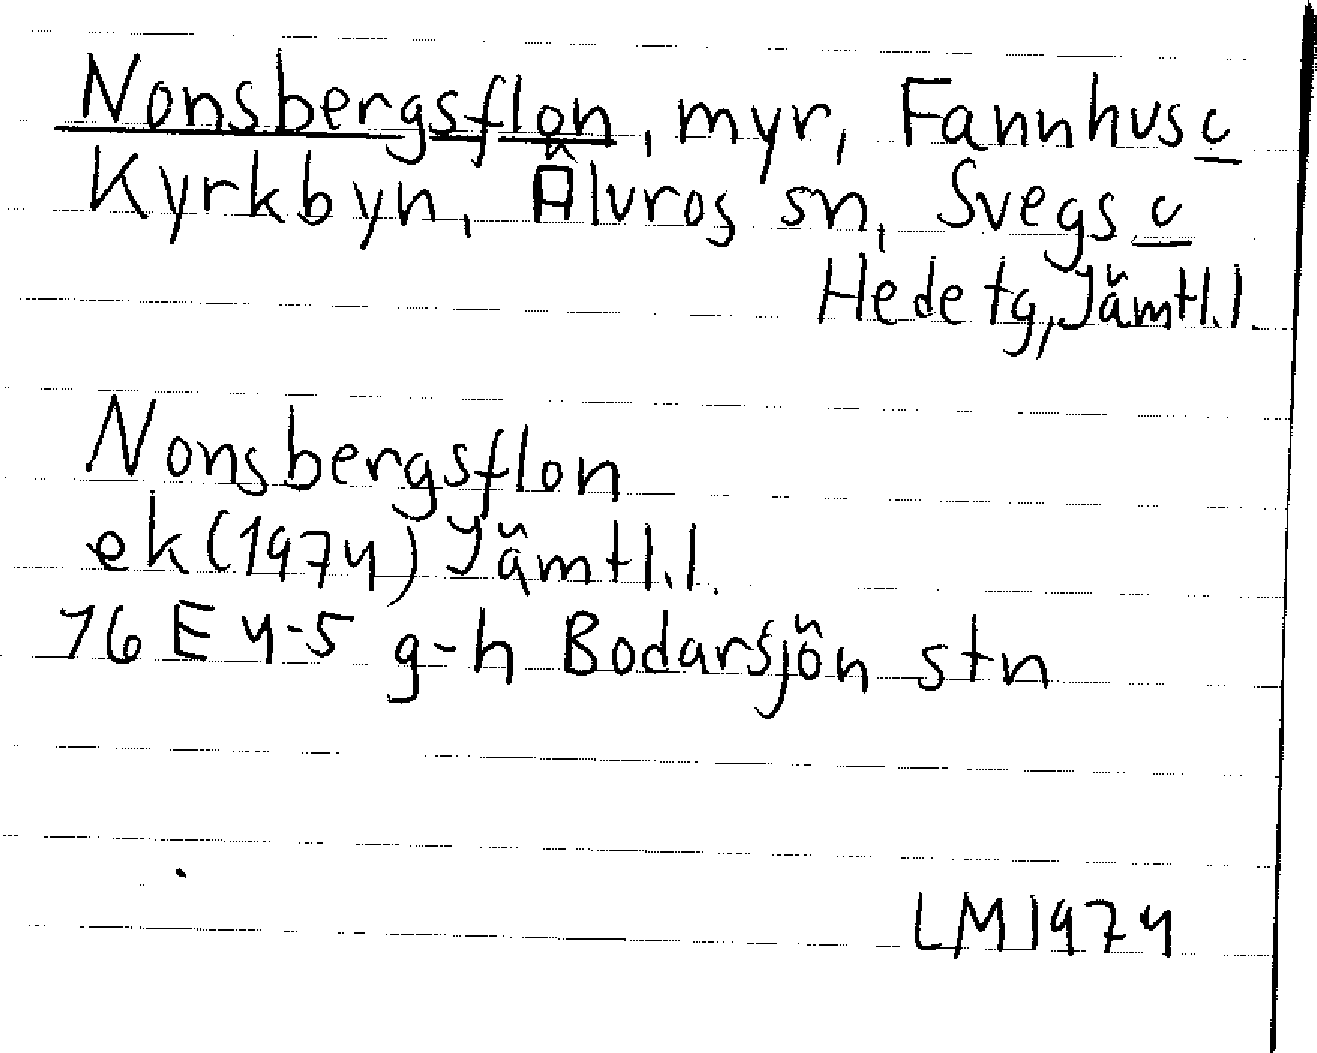 Nonsbergsflon, myr, Fannhus o
Kyrkbyn, Älvros sn, Svegs o
Hede tg, Jämtl.l.
Nonsbergsflon
ek (1974) Jämtl.l.
16 E 4-5 g-h Bodarsjön stn
LM 1974